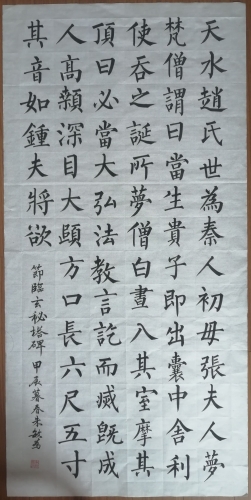 天水趙氏世為秦人初母張夫人夢
梵僧謂曰當生貴子即出囊中舍利
使吞之誕所夢僧白晝入其室摩其
頂曰必當大弘法教言訖而滅既成
人高顙深目大頤方口長六尺五寸
其音如鍾夫將欲
節臨玄秘塔碑 甲辰暮春朱